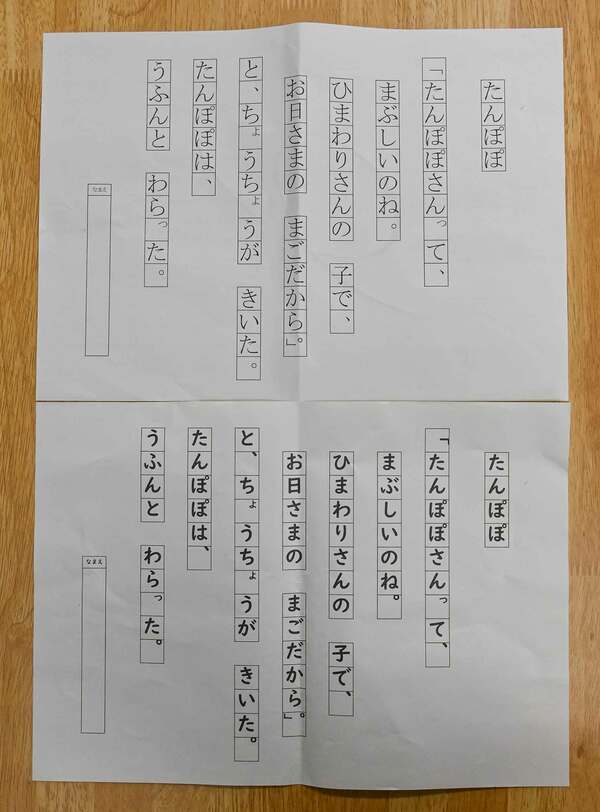 たんぽぽ
「たんぽぽさんって、
まぶしいのね。
ひまわりさんの 子で、
お日さまの まごだから。」
と、ちょうちょうが きいた。
たんぽぽは、
うふんと わらった。
なまえ
たんぽぽ
「たんぽぽさんって、
まぶしいのね。
ひまわりさんの 子で、
お日さまの まごだから。」
と、ちょうちょうが きいた。
たんぽぽは、
うふんと わらった。
なまえ